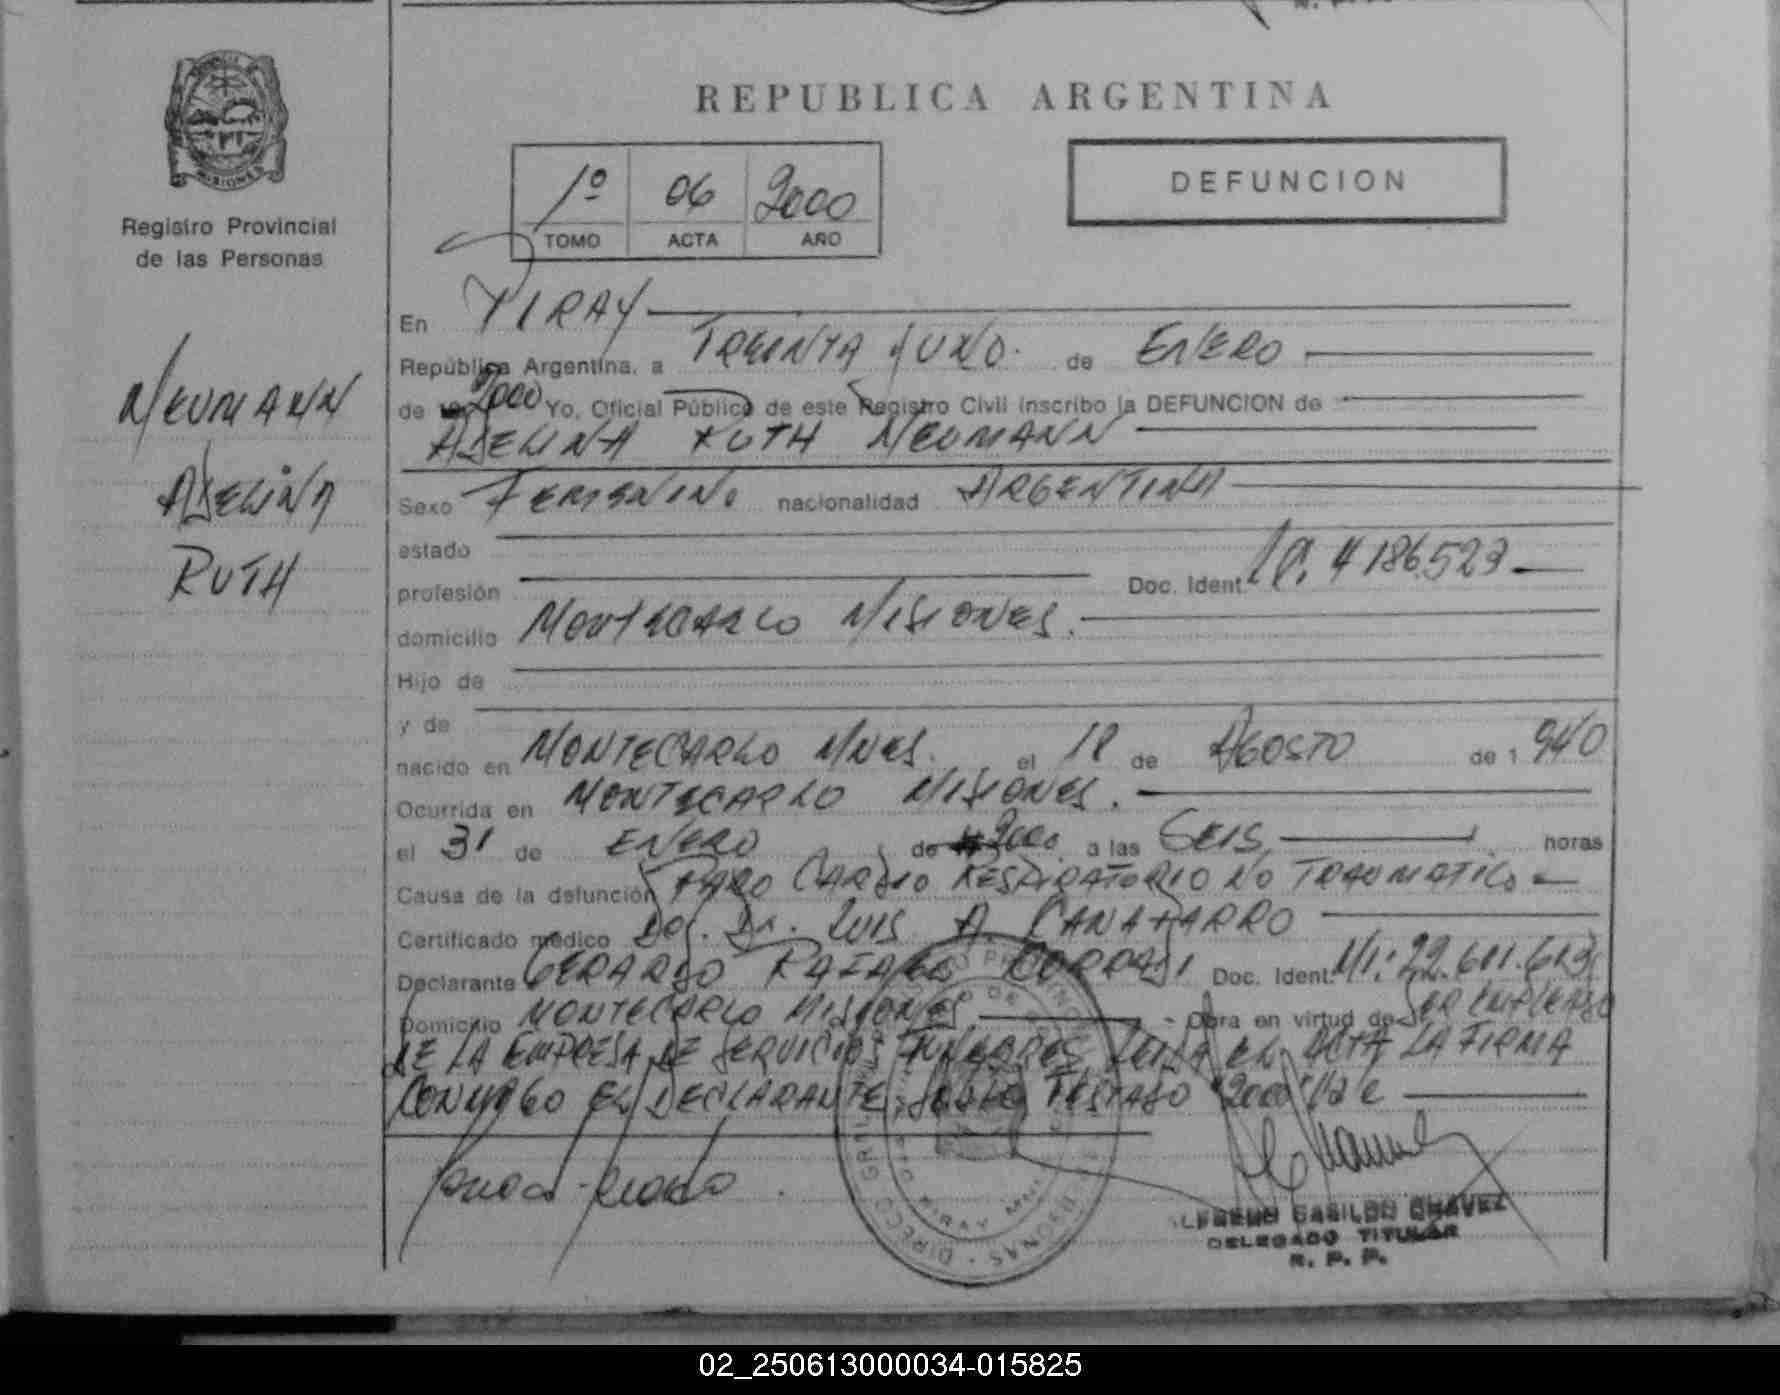 REPUBLICA ARGENTINA
MISIONES
Registro Provincial
de las Personas
1º 06 2000
TOMO ACTA AÑO
DEFUNCION
NEUMANN
ADELINA
RUTH
En PIRAY
República Argentina, a TREINTA y UNO. de ENERO
de 2000 Yo, Oficial Público de este Registro Civil inscribo la DEFUNCION de
ADELINA RUTH NEUMANN
Sexo FEMENINO nacionalidad ARGENTINA
estado
profesión Doc. Ident. 4186.523
domicilio MONTECARLO MISIONES.
Hijo de
y de
nacido en MONTECARLO MNES. el 18 de AGOSTO de 1 940
Ocurrida en MONTECARLO MISIONES.
el 31 de ENERO de 2000 a las SEIS horas
Causa de la defunción PARO CARDIO RESPIRATORIO NO TRAUMATICO
Certificado médico Dr. LUIS A. CANATARRO
Declarante GERARDO RAFAEL Doc. Ident. MI: 22.611.613
Domicilio MONTECARLO MISIONES - Obra en virtud de SER EMPLEADO
DE LA EMPRESA DE SERVICIOS FUNEBRES EL ACTA LA FIRMA
CONMIGO EL DECLARANTE, SOBRE TESTADO 2000 VALE
PIRAY
ALFREDO CASILDO CHAVEZ
DELEGADO TITULAR
R. P. P.
02_250613000034-015825